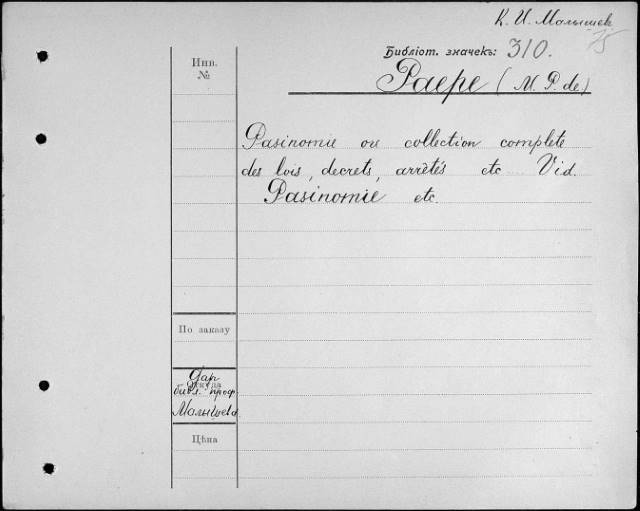 К. И. Малышев
75
Библіот. значекъ: 310.
Paepe (M. P. de)
Инв.
№
Pasinomie ou collection complete
des lois, decrets, arrêtés etc.... Vid.
Pasinomie etc.
По заказу
Дар
Откуда
библ. проф.
Малышева.
Цѣна